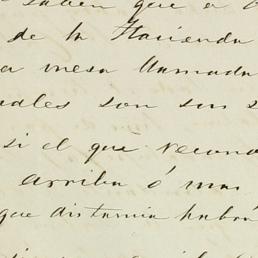 saben que a
de la Hacienda
a mesa llamada
uales son sus
si el què recono
arriba ó mas
que distancia habrá